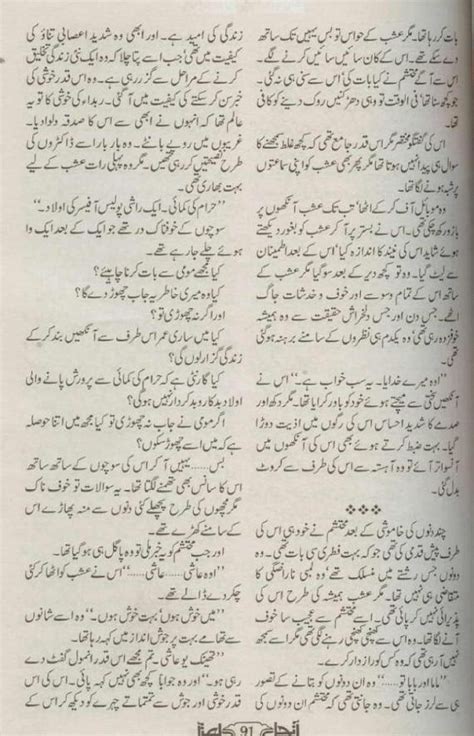 بات کر رہا تھا۔ مگر عشب کے حواس تو بس یہیں تک ساتھ
تھے۔ اس کے کان سائیں سائیں کرنے لگے تھے۔
اس سے آگے محتشم نے کیا بات کی اس سے سنی ہی نہ گئی۔
جو کچھ سنا تھا فی الوقت تو وہی دھڑکنیں روک دینے کو کافی
تھا۔
اس کی گفتگو مختصر مگر اس قدر جامع تھی کہ کچھ غلط سمجھنے کا
سوال ہی پیدا نہیں ہوتا تھا مگر پھر بھی عشب کو اپنی سماعتوں
پر شبہ ہونے لگا تھا۔
وہ موبائل آف کر کے اٹھا تب تک عشب آنکھوں پر
بازو رکھ چکی تھی۔ اس نے بستر پر آ کر عشب کو بغور دیکھتے
ہوئے شاید اس کی نیند کا اندازہ کیا تھا۔ اس کے بعد اطمینان
سے لیٹ گیا۔ وہ تو کچھ دیر کے بعد سو گیا مگر عشب کے
ساتھ اس کے تمام وسوسے اور خوف و خدشات جاگ
اٹھے۔ جس دن اور جس دلخراش حقیقت سے وہ ہمیشہ
خوفزدہ رہی تھی وہ یکدم ہی نظروں کے سامنے برہنہ ہو گئی
تھی۔
”اوہ میرے خدایا۔ یہ سب خواب ہے۔“ اس نے
آنکھیں سختی سے میچتے ہوئے خود کو باور کرایا تھا۔ مگر دکھ اور
صدمے کا شدید احساس اس کی رگوں میں اذیت دوڑا
گیا۔ بہت ضبط کرتے ہوئے بھی اس کی آنکھوں میں
آنسو اتر آئے تو وہ آہستہ سے اس کی طرف سے کروٹ
بدل گئی۔
❖❖❖
چند دنوں کی خاموشی کے بعد محتشم نے خود ہی اس کی
طرف پیش قدمی کی تھی۔ جو کہ بہت فطری سی بات تھی۔ وہ
دونوں جس رشتے میں منسلک تھے وہ لمبی ناراضگی کا
متقاضی ہی نہیں تھا۔ مگر عشب دل سے اس کی
پذیرائی نہیں کر پائی تھی۔ اسے محتشم سے عجیب سا خوف
آنے لگا تھا۔ وہ اس سے کھنچی کھنچی رہنے لگی تھی مگر اسے سمجھ
نہیں آ رہی تھی کہ وہ کس کو راز دار کرے۔
”ماما اور بابا تو بالکل نہیں۔“ وہ ان دونوں کو بتانے کے تصور
ہی سے لرز جاتی تھی۔ وہ جانتی تھی کہ وہ ان دونوں کی
زندگی کی امید ہے۔ اور ابھی وہ شدید اعصابی تناؤ کی
کیفیت میں تھی جب اسے پتا چلا کہ وہ ایک نئی زندگی تخلیق
کرنے کے مراحل سے گزر رہی ہے۔ وہ اس قدر خوشی کی
خبر سن کر سکتے کی کیفیت میں تھی۔ ربداء کی خوشی کا تو یہ
عالم تھا کہ انہوں نے ابھی سے اس کا صدقہ دلوا دیا۔
غریبوں میں روپے بانٹے۔ وہ بار بار اسے ڈاکٹروں کی
طرح نصیحتیں کر رہی تھیں۔ مگر وہ پہلی رات عشب کے لیے
بہت بھاری تھی۔
”حرام کی کمائی۔ ایک راشی پولیس آفیسر کی اولاد۔“
سوچوں کے خوفناک در تھے جو ایک کے بعد ایک وا
ہوئے چلے جا رہے تھے۔
کیا مجھے مومی سے بات کرنا چاہئے؟
کیا وہ میری خاطر یہ جاب چھوڑ دے گا؟
اور اگر نہ چھوڑی تو؟
کیا میں ساری عمر اس طرف سے آنکھیں بند کر کے
زندگی گزار لوں گی؟
کیا گارنٹی ہے کہ حرام کی کمائی سے پرورش پانے والی
اولاد بدکار و بدکردار نہیں ہو گی؟
اگر مومی نے جاب نہ چھوڑی تو کیا مجھ میں اتنا حوصلہ
ہے کہ میں اسے چھوڑ سکوں؟
بس...... یہیں آ کر اس کی سوچوں کے ساتھ ساتھ
اس کا سانس بھی تھمنے لگتا تھا۔ یہ سوالات تو خوف ناک
مگرمچھوں کی طرح پچھلے کئی دنوں سے منہ پھاڑے اس
کے سامنے کھڑے تھے۔
اور جب محتشم کو یہ خبر ملی تو وہ پاگل ہی ہو گیا تھا۔
”اوہ عاشی...... عاشی......“ اس نے عشب کو اٹھا کر کئی
چکر دے ڈالے تھے۔
”میں خوش ہوں بہت خوش ہوں۔“ وہ اسے شانوں
سے تھامے بہت پرجوش انداز میں کہہ رہا تھا۔
”تھینک یو عاشی۔ تم مجھے اس قدر انمول گفٹ دے
رہی ہو۔“ اور وہ جو اباً کچھ کہہ ہی نہیں پائی۔ کہیں اس
قدر خوشی اور جوش سے تمتماتے چہرے کو دیکھ کر اس کے
91